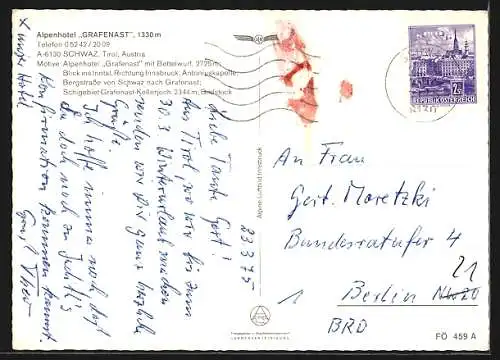 Alpenhotel „GRAFENAST", 1330 m
Telefon 0 52 42 / 20 09
A-6130 SCHWAZ, Tirol, Austria
Motive: Alpenhotel „Grafenast" mit Bettelwurf, 2725 m
Blick ins Inntal, Richtung Innsbruck, Antoniuskapelle,
Bergstraße von Schwaz nach Grafenast,
Schigebiet Grafenast-Kellerjoch 2344 m,
23.3.75
Liebe Tante Gert!
Aus Tirol, wo wir bis zum
30.3 Winterurlaub machen
senden wir Dir ganz herzliche
Grüße
Ich hoffe immer noch, daß
Du doch noch zu Judith's
Konfirmation kommen kannst.
Theo
X unser Hotel
Alpine Luftbild Innsbruck
REPUBLIK ÖSTERREICH
An Frau
Gert. Moretzki
Bundesratufer 4
1 Berlin 21
BRD
FÖ 459 A